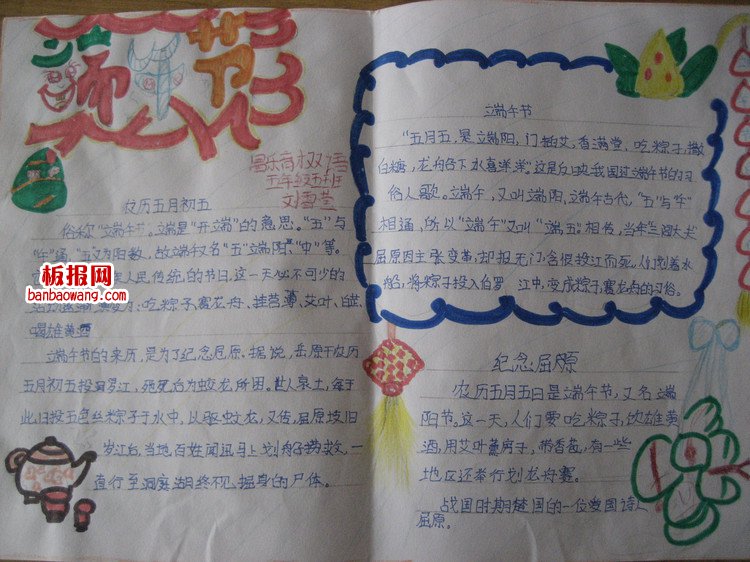 端午节
农历五月初五
俗称"端午节。端是"开端"的意思。"五"与
"午"通,"五"为阳数,故端午又名"五"端阳"中"等。
人民传统的节日,这一天必不可少的
吃粽子,赛龙舟、挂菖蒲、艾叶、白芷、
喝雄黄酒
端午节的来历,是为了纪念屈原。据说,屈原于农历
五月初五投汨罗江,死后为蛟龙所困。世人哀之,每于
此日投五色丝粽子于水中,以驱蛟龙,又传,屈原投汨
罗江后,当地百姓闻讯马上划船捞救,一
直行至洞庭湖,终不见屈原的尸体。
板报网
banbaowang.com
端午节
"五月五,是端阳,门插艾,香满堂,吃粽子,撒
白糖,龙舟下水喜洋洋。"这是反映我国过端午节的习
俗人歌。端午,又叫端阳,端午古代,"五"与"午"
相通,所以"端午"又叫"端五。相传,当年三闾大夫
屈原因主张变革,却报无门,含恨投江而死,人们划着水
船,将粽子投入白罗 江中,变成粽子,赛龙舟的习俗。
纪念屈原
农历五月五日是端午节,又名端
阳节。这一天,人们要吃粽子,饮雄黄
酒,用艾叶熏房子,带香苞,有一些
地区还举行划龙舟赛。
战国时期楚国的一位爱国诗人
屈原。